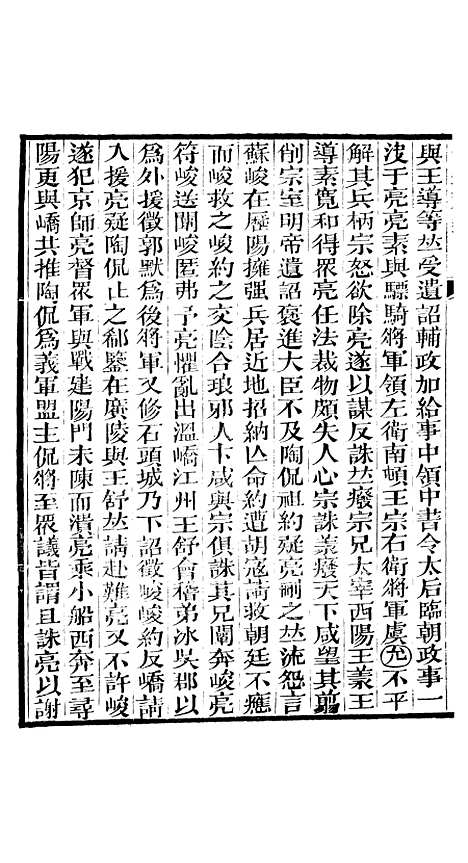 與王導等竝受遺詔輔政加給事中領中書令太后臨朝政事一
決于亮亮素與驃騎將軍領左衛南頓王宗右衛將軍虞允不平
解其兵柄宗怒欲除亮遂以謀反誅竝廢宗兄太宰西陽王羕王
導素寬和得眾亮任法裁物頗失人心宗誅羕廢天下咸望其翦
削宗室明帝遺詔褒進大臣不及陶侃祖約疑亮刪之竝流怨言
蘇峻在歷陽擁强兵居近地招納亾命約遭胡寇請救朝廷不應
而峻救之峻約之交陰合琅邪人卞咸與宗俱誅其兄闡奔峻亮
符峻送闡峻匿弗予亮懼亂出溫嶠江州王舒會稽弟冰吳郡以
爲外援徵郭默爲後將軍又修石頭城乃下詔徵峻峻約反嶠請
入援亮疑陶侃止之郗鑒在廣陵與王舒竝請赴難亮又不許峻
遂犯京師亮督眾軍與戰建陽門未陳而潰亮乘小船西奔至尋
陽更與嶠共推陶侃爲義軍盟主侃將至眾議皆謂且誅亮以謝